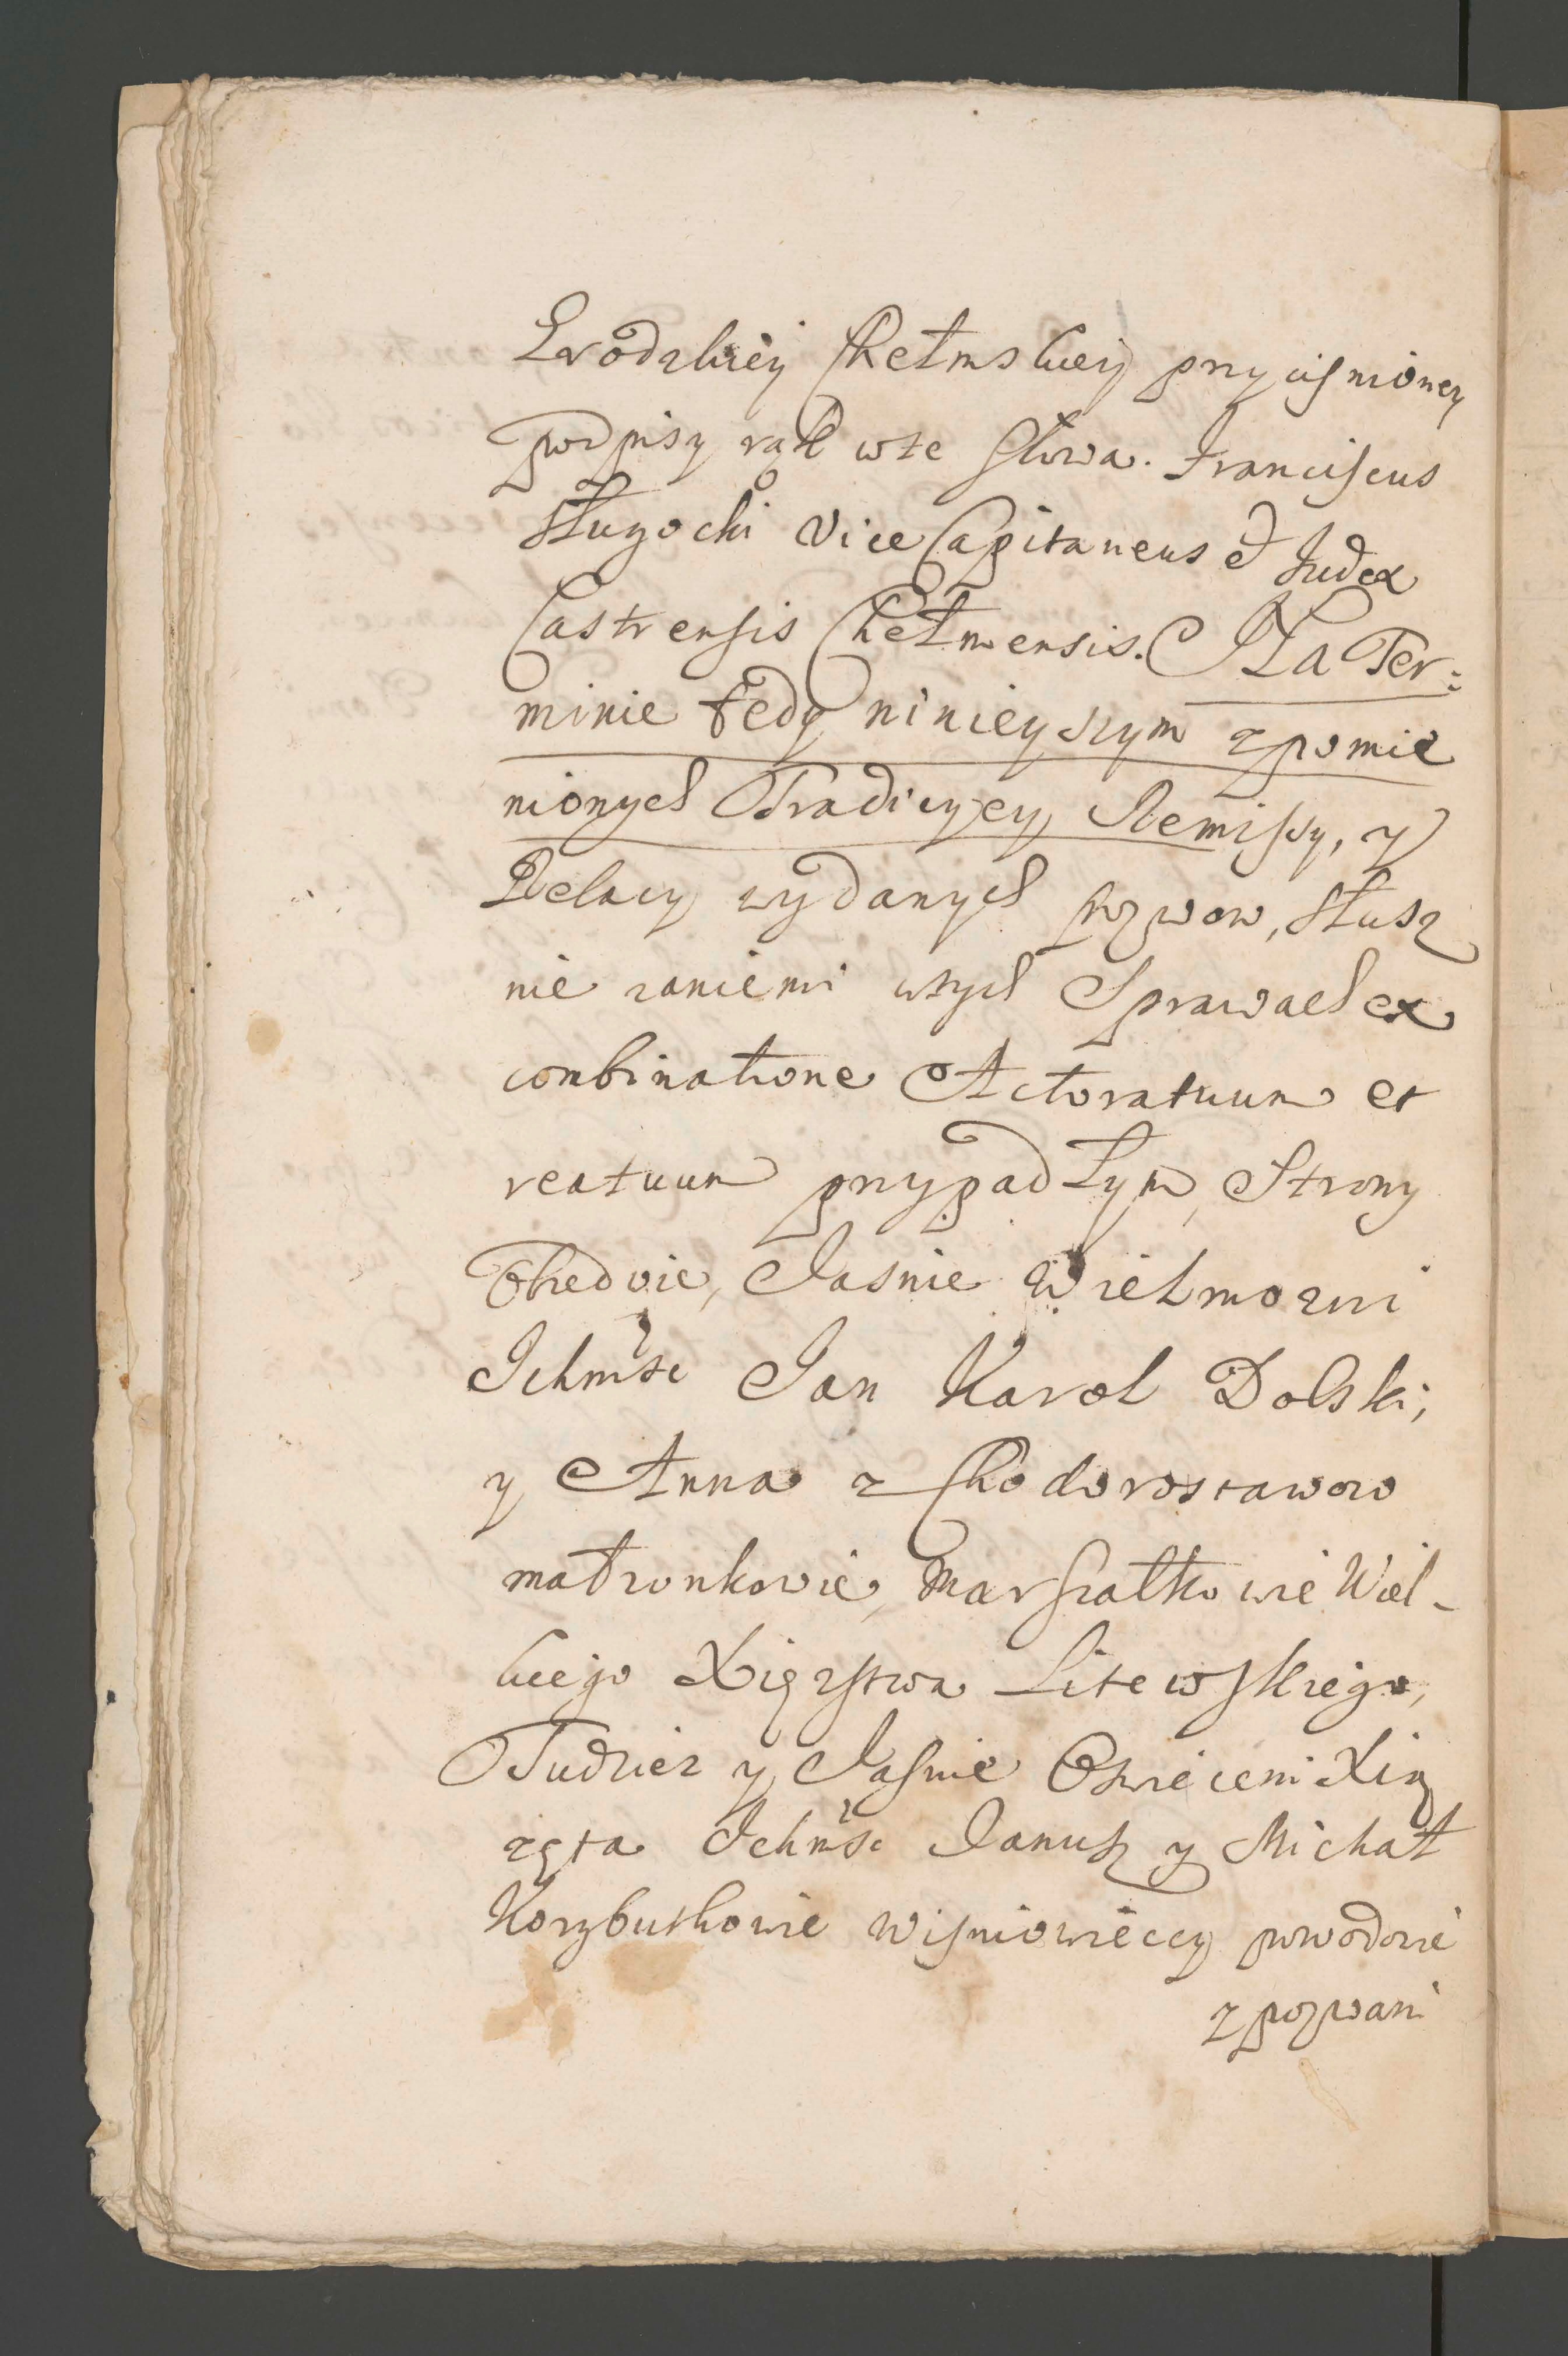 Grodzkiey Chełmskiey przycisnioney
podpisy rąk wte słowa. Franciscus
Dłuzocki Vice Capitaneus et Judex
Castrensis Chełmensis. Na Ter:
minie tedy ninieyszym zpomie
nionych Tradicyey, Remissy, y
Relacy wydanych pozwow, słusz
nie zaniemi wtych Sprawach ex
combinatione Actoratuum et
reatuum przypadłym, Strony
Obiedwie, Jasnie Wielmozni
Ichmsc Jan Karol Dolski,
y Anna z Chodorostawow
małzonkowie, Marszałkowie Wiel-
kiego Xięzstwa Litewskiego,
Tudziez y Jasnie Oswieceni Xią
zęta Ichmsc Janusz y Michał
Korzbuthowie Wisniowieccy powodowie
zpozwani